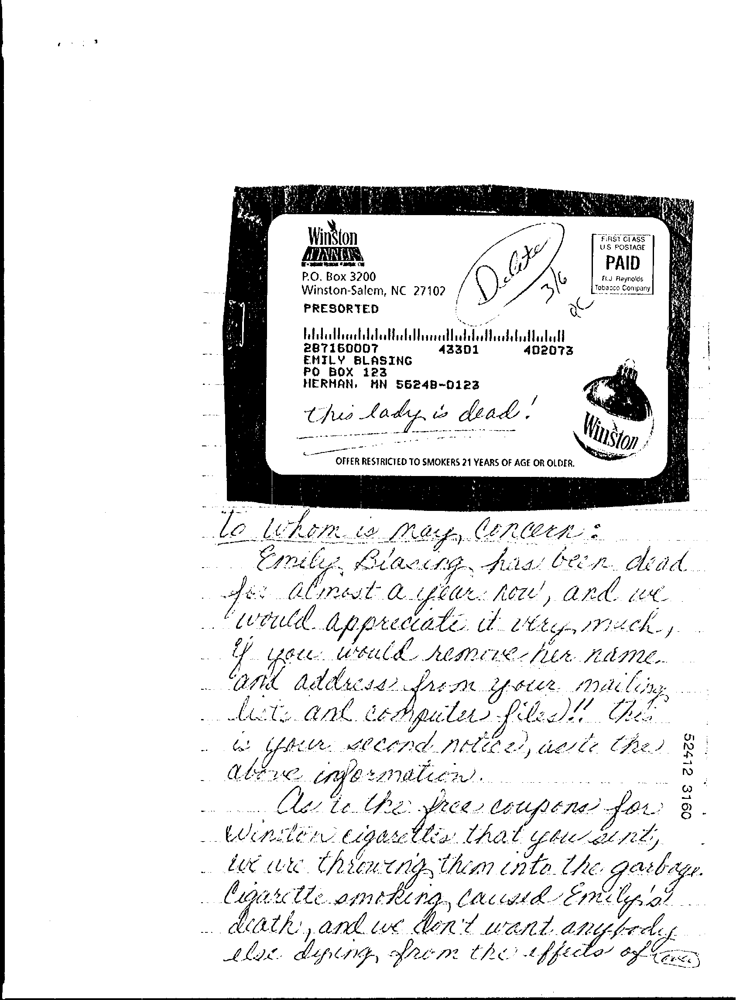 Winston
WINNERS
P.O. Box 3200
Winston-Salem, NC 27102
PRESORTED
Delete
3/6
FIRST CLASS
U S POSTAGE
PAID
R.J. Reynolds
Tobacco Company
287160007 43301 402073
EMILY BLASING
PO BOX 123
HERMAN, MN 56248-0123
this lady is dead!
Winston
OFFER RESTRICTED TO SMOKERS 21 YEARS OF AGE OR OLDER.
To whom is may concern:
Emily Blasing has been dead
for almost a year now, and we
would appreciate it very much,
if you would remove her name
and address from your mailing
lists and computer files)!! This
is your second notice, as to the
above information.
As to the free coupons for
Winston cigarettes that you sent,
we are throwing them into the garbage.
Cigarette smoking caused Emily's
death, and we don't want anybody
else dying from the effects of (over)
52412 3160